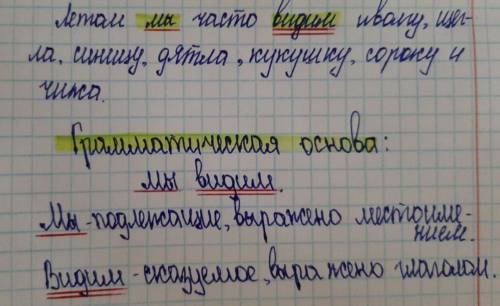 Летом мы часто видим иволгу, щег-
ла, синицу, дятла, кукушку, сороку и
чижа.
Грамматическая основа:
мы видим.
Мы - подлежащие, выражено местоиме-
нием.
Видим - сказуемое, выражено глаголом.